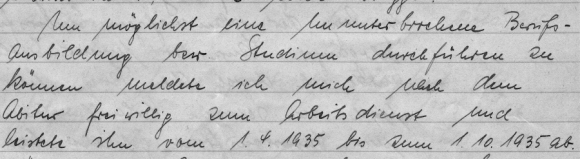 Um möglichst eine ununterbrochene Berufs-
ausbildung bzw Studium durchführen zu
können meldete ich mich nach dem
Abitur freiwillig zum Arbeitsdienst und
leistete ihn vom 1.4.1935 bis zum 1.10.1935 ab.